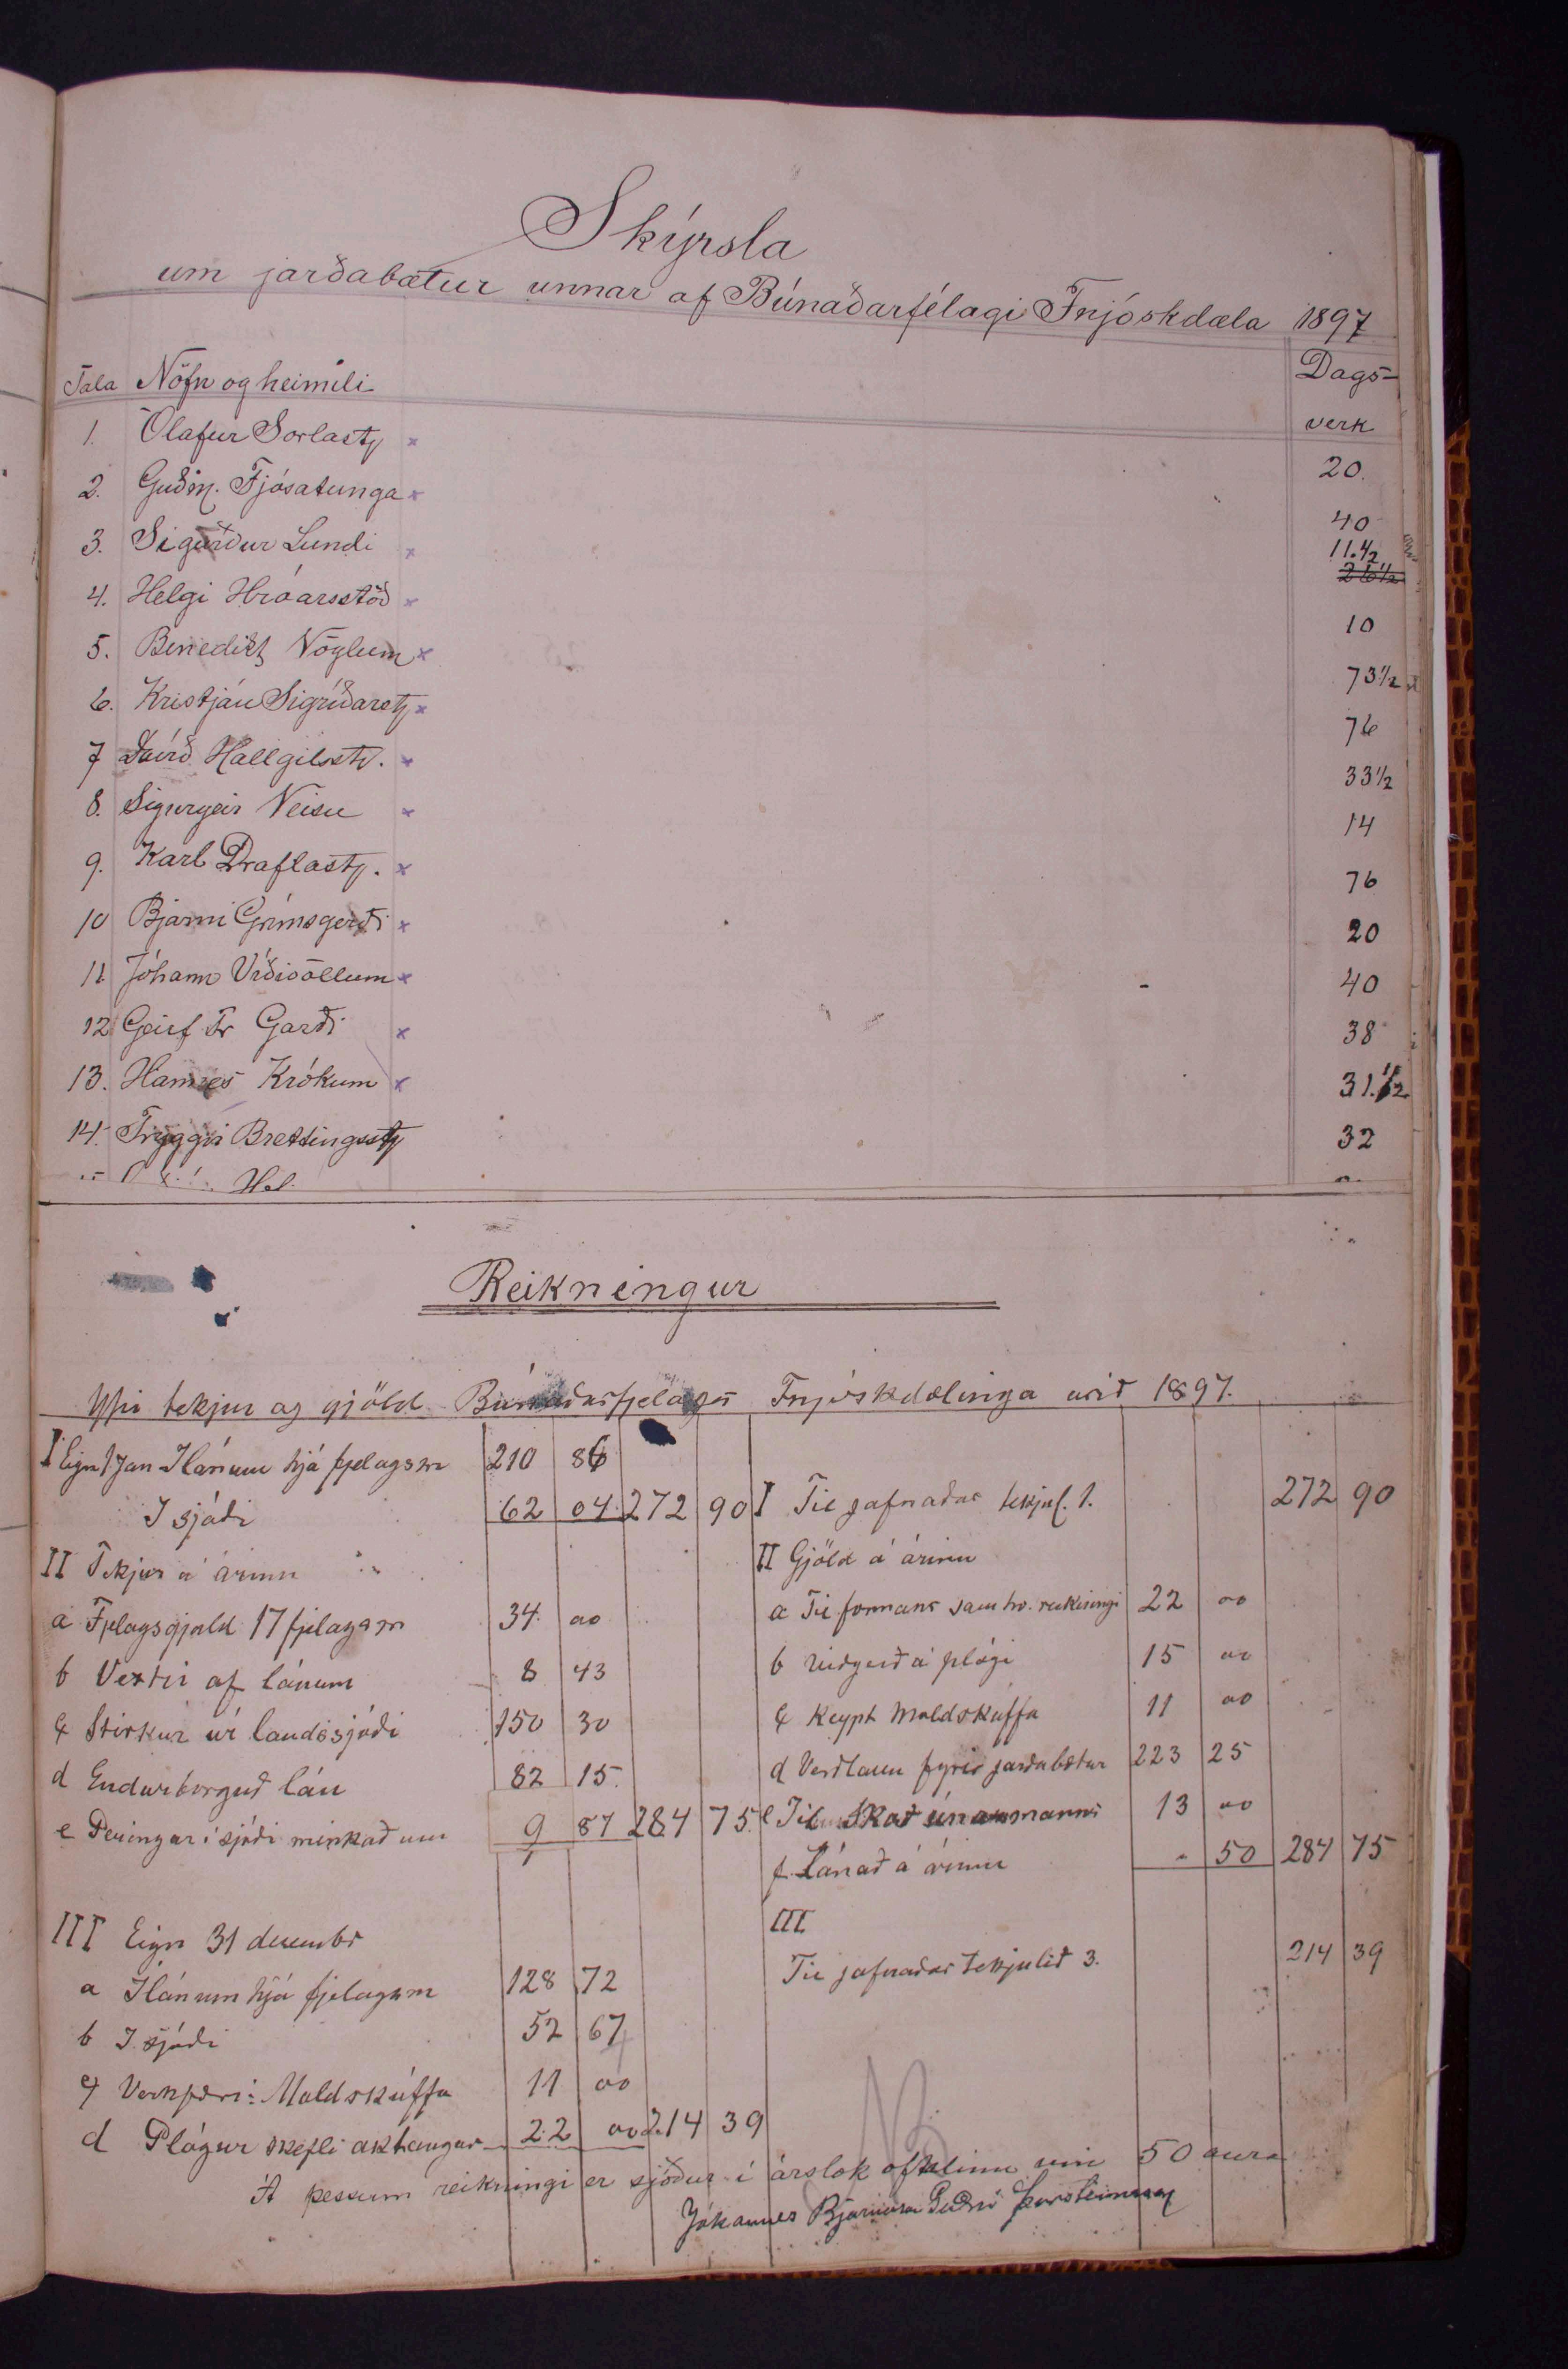 Skýrsla
um jarðabætur unnar af Búnaðarfélagi Fnjóskdæla 1897
Tala Nöfn og heimili Dags-
verk
1. Ólafur Sörlastþ × 20
2. Guðm. Fjósatunga × 40
3. Sigurður Lundi × 11.1/2
4. Helgi Hróarsstöð × 26 1/2
5. Benedikt Vöglum × 10
6. Kristján Sigríðarstþ × 73 1/2
7 Davíð Hallgilsstþ. × 76
8. Sigurgeir Veisu × 33 1/2
9. Karl Draflastþ. × 14
10 Bjarni Grímsgerði × 76
11. Jóhann Víðivöllum × 20
12 Geirf. Tr Garði × 40
13. Hannes Krókum × 38
14. Tryggvi Brettingsstþ 31.1/2
32
Reikningur
Yfir tekjur og gjöld Búnaðarfjelags Fnjóskdælinga árið 1897.
I Eign 1 Jan Í lánum hjá fjelagsm 210 86
Í sjóði 62 04 272 90 I Til jafnaðar tekjul. 1. 272 90
II Tekjur á árinu II Gjöld á árinu
a Fjelagsgjald 17 fjelagsm 34 00 a Til formans samkv. reikningi 22 00
b Vextir af lánum 8 43 b viðgerð á plógi 15 00
c Stirkur úr landssjóði 150 30 c Keypt Moldskúffa 11 00
d Endurborguð lán 82 15 d Verðlaun fyrir jarðabætur 223 25
e Peningar í sjóði minkað um 9 87 284 75 e Til skoðunarmanns 13 00
f Lánað á árinu . 50 284 75
III Eign 31 desembr III
a Í lánum hjá fjelagsm 128 72 Til jafnaðar tekjulið 3. 214 39
b Í sjóði 52 67
c Verkfæri: Moldskúffa 11 00
d Plógur skefli aktaugar 22 00 214 39
Á þessum reikningi er sjóður í árslok oftalinn um 50 aura
Jóhannes Bjarnason Guðni Þorsteinsson